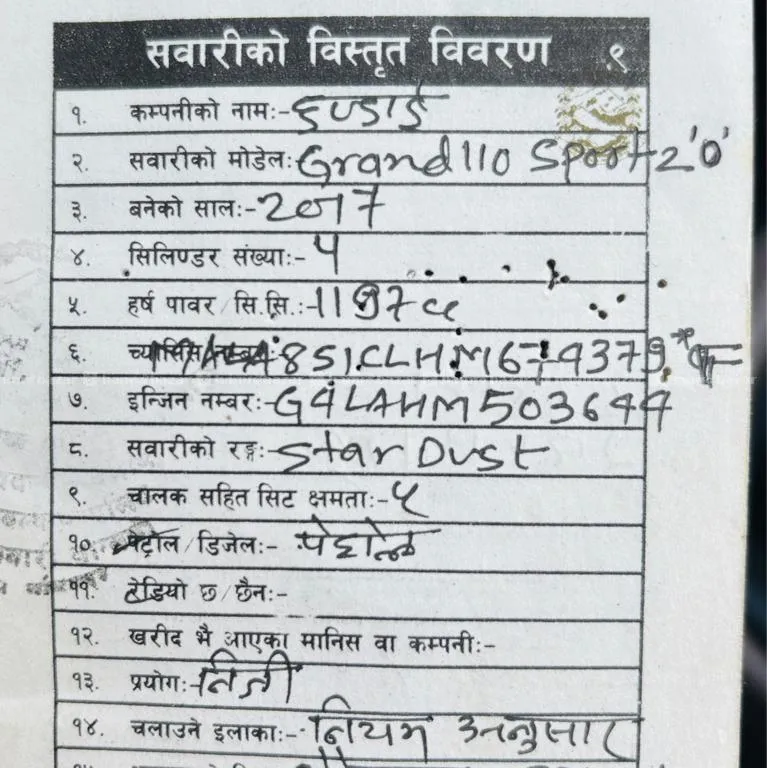 सवारीको विस्तृत विवरण ९
१. कम्पनीको नामः- हुण्डाई
२. सवारीको मोडेलः Grand 110 Sport 2'0'
३. बनेको सालः- 2017
४. सिलिण्डर संख्याः- ४
५. हर्ष पावर/सि.सि.ः- 1197cc
६. च्यासिस नम्बरः MALA851CLHM674379*F
७. इन्जिन नम्बरः- G4LAHM503644
८. सवारीको रङ्गः- Star Dust
९. चालक सहित सिट क्षमताः- ५
१०. पेट्रोल/डिजेलः- पेट्रोल
११. रेडियो छ/छैनः-
१२. खरीद भै आएका मानिस वा कम्पनीः-
१३. प्रयोगः- निजी
१४. चलाउने इलाकाः- नियम अनुसार